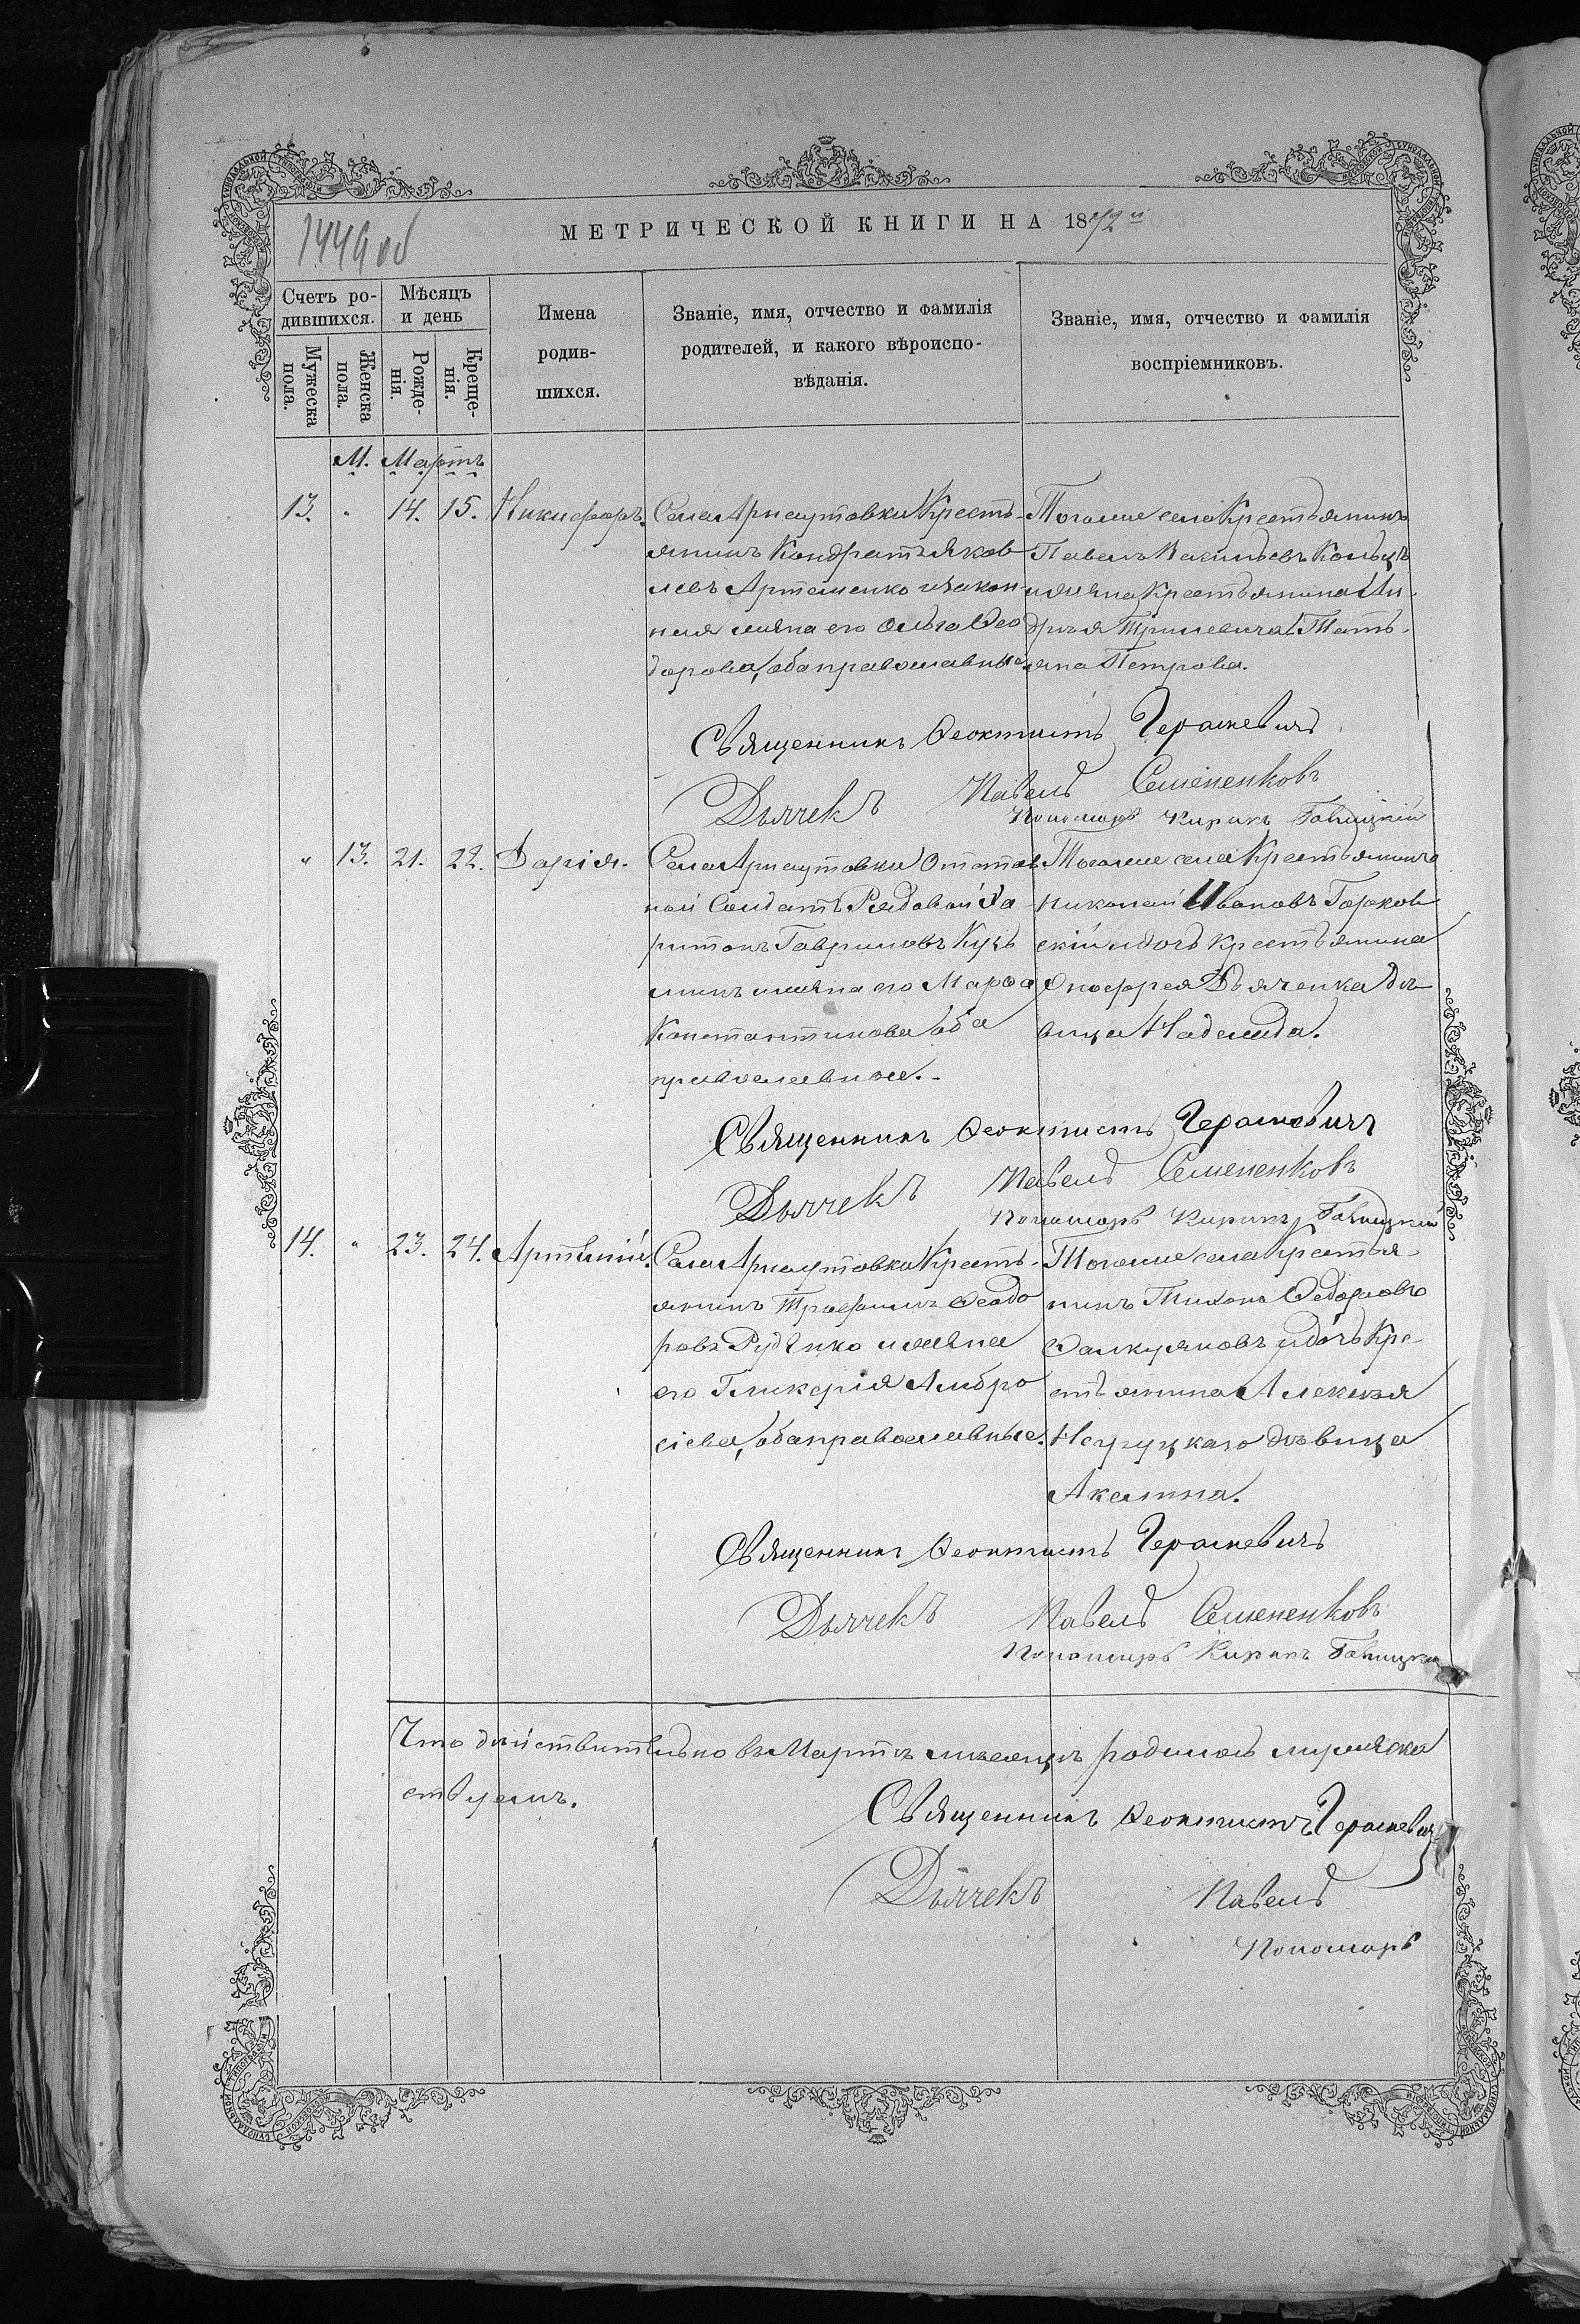 1449 об
МЕТРИЧЕСКОЙ КНИГИ НА 1872й
Счетъ родившихся.
Мужеска пола.
Женска пола.
Мѣсяцъ и день
Рожденія.
Крещенія.
Имена родившихся.
Званіе, имя, отчество и фамилія родителей, и какого вѣроисповѣданія.
Званіе, имя, отчество и фамилія воспріемниковъ.
М. Мартъ
13. " 14. 15. Никифоръ.
Села Арнаутовки Кресть-
янинъ Кондратъ Яков
левъ Артеменко и закон
ная жена его Ольга Ѳео
дорова, оба православные.
Тогоже села Крестьянинъ
Павелъ Васильевъ
и жена Крестьянина Ан-
дрея Тать-
яна Петрова.
Священникъ Ѳеоктистъ Герашевичъ
Дьячекъ Павелъ Семененковъ
Пономарь Кирикъ
" 13. 21. 22. Дарія.
Села Арнаутовки Отстав
ной Солдатъ Рядовой Ха
ритонъ Гавриловъ Кузь
минъ и жена его Марѳа
Константинова оба
православные.
Тогоже села Крестьянинъ
Николай Ивановъ Горжов
скій и дочь крестьянина
Онофрея Дьяченка дѣ
вица Надежда.
Священникъ Ѳеоктистъ Герашевичъ
Дьячекъ Павелъ Семененковъ
Пономарь Кирикъ
14. " 23. 24. Артемій.
Села Арнаутовки Кресть-
янинъ Трофимъ Ѳеодо
ровъ Руденко и жена
его Гликерія Амбро
сіева, оба православные.
Тогоже села Крестья
нинъ Тихонъ Ѳедоровъ
и дочь Кре
стьянина Алексѣя
дѣвица
Акилина.
Священникъ Ѳеоктистъ Герашевичъ
Дьячекъ Павелъ Семененковъ
Пономарь Кирикъ
Что дѣйствительно въ Мартѣ мѣсяцѣ
Священникъ Ѳеоктистъ Герашевичъ
Дьячекъ Павелъ
Пономарь